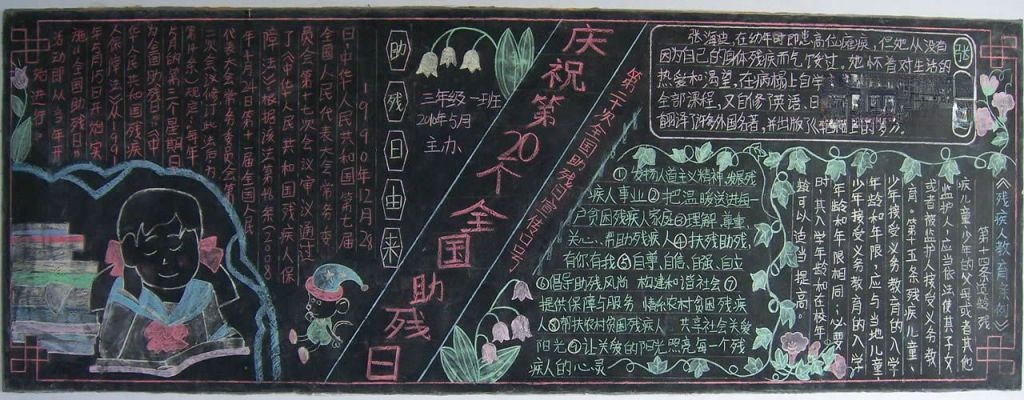 庆祝第20个全国助残日
助残日由来
1990年12月28
日,中华人民共和国第七届
全国人民代表大会常务委
员会第十七次会议审议通过
了《中华人民共和国残疾人保
障法》。根据该法第48条(2008
年4月24日第十一届全国人民
代表大会常务委员会第
二次会议修订此法为
规定:"每年
5月的第三个星期日,
为全国助残日。"《中
华人民共和国残疾
人保障法》从1991
年5月15日开始实
施,"全国助残日"
活动即从
始进行。
三年级一班
2010年5月
主办
第二十次全国助残日宣传口号
①发扬人道主义精神,发展残
疾人事业②把温暖送进每一
户贫困残疾人家庭③理解、尊重、
关心、帮助残疾人④扶残助残,
有你有我⑤自尊、自信、自强、自立
⑥倡导助残风尚 构建和谐社会⑦
提供保障与服务 情系农村贫困残疾
人⑧帮扶农村贫困残疾人 共享社会关爱
阳光⑨让关爱的阳光照亮每一个残
疾人的心灵
张海迪,在幼年时即患高位瘫痪,但她从没有
因为自己的身体残疾而气馁过,她怀着对生活的
热爱和渴望,在病榻上自学
全部课程,又自修了英语、日
翻译了许多外国名著,并出版了
《残疾人教育条例》
第十四条适龄残
疾儿童、少年的父母或者其他
监护人,应当依法使其子女
或者被监护人接受义务教
育。第十五条残疾儿童、
少年接受义务教育的入学
年龄和年限,应当与当地儿童、
少年接受义务教育的入学
年龄和年限相同;必要
时,其入学年龄和在校年
龄可以适当提高。